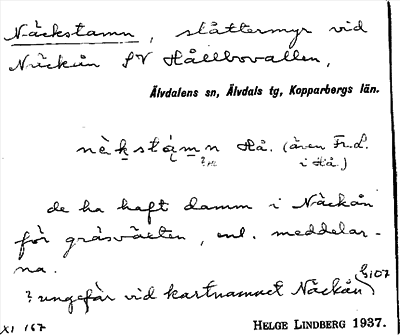 Näckstamn, slåttermyr vid
Näckån SV Hållbovallen,
Älvdalens sn, Älvdals tg, Kopparbergs län.
nèkstámn Hå. (även Fr.L.
i Hå.)
de ha haft damm i Näckån
för gräsväxten, enl. meddelar-
na.
? ungefär vid kartnamnet Näckån G107
XI 167
HELGE LINDBERG 1937.